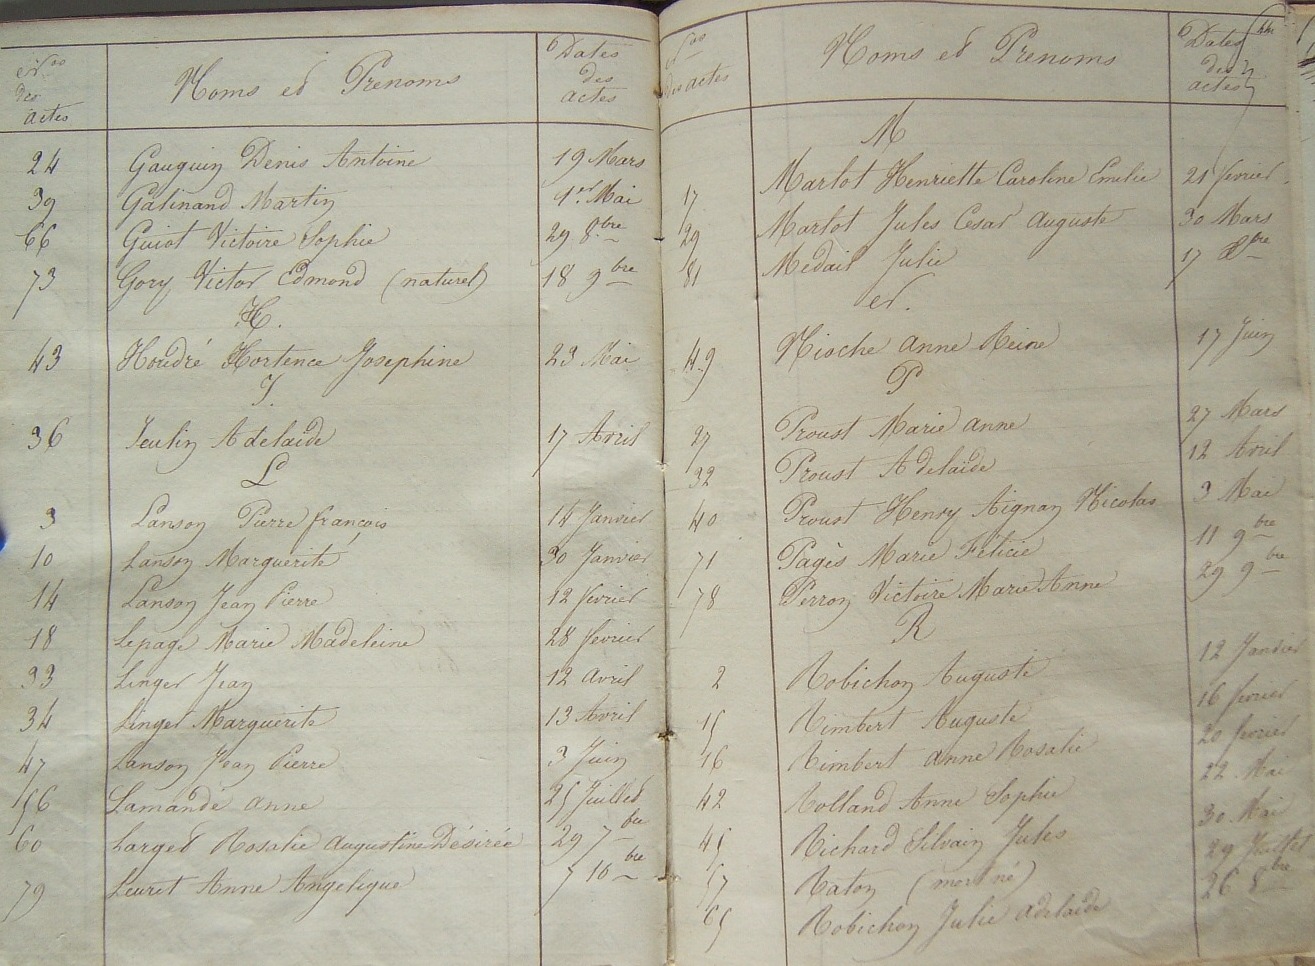 Nos des actes Noms et Prenoms Dates des actes
24 Gauguin Denis Antoine 19 Mars
39 Galinand Martin 1er Mai
66 Guiot Victoire Sophie 29 8bre
73 Gory Victor Edmond (naturel) 18 9bre
H.
43 Houdré Hortence Josephine 23 Mai
J.
36 Jeulin Adelaide 17 Avril
L
3 Lanson Pierre françois 14 Janvier
10 Lanson Marguerite 30 Janvier
14 Lanson Jean Pierre 12 fevrier
18 Lepage Marie Madeleine 28 fevrier
33 Linger Jean 12 avril
34 Linger Marguerite 13 Avril
47 Lanson Jean Pierre 3 Juin
56 Lamande anne 25 Juillet
60 Larged Rosalie Augustine Désirée 29 7bre
79 Leuret Anne Angelique 7 10bre
Nos des actes Noms et Prenoms Dates des actes
M
17 Martot Henriette Caroline Emilie 21 fevrier
29 Martot Jules Cesar auguste 30 Mars
81 Medail Julie 17 Xbre
N.
49 Nioche anne Reine 17 Juin
P
27 Proust Marie anne 27 Mars
32 Proust Adelaide 12 Avril
40 Proust Henry Aignan Nicolas 3 Mai
71 Pagès Marie Félicie 11 9bre
78 Perron Victoire Marie Anne 29 9bre
R
2 Robichon Auguste 12 Janvier
15 Rimbert Auguste 16 fevrier
16 Rimbert anne Rosalie 20 fevrier
42 Rolland Anne Sophie 22 Mai
45 Richard Silvain Jules 30 Mai
57 Raton (mort né) 29 Juillet
65 Robichon Julie adelaide 26 8bre